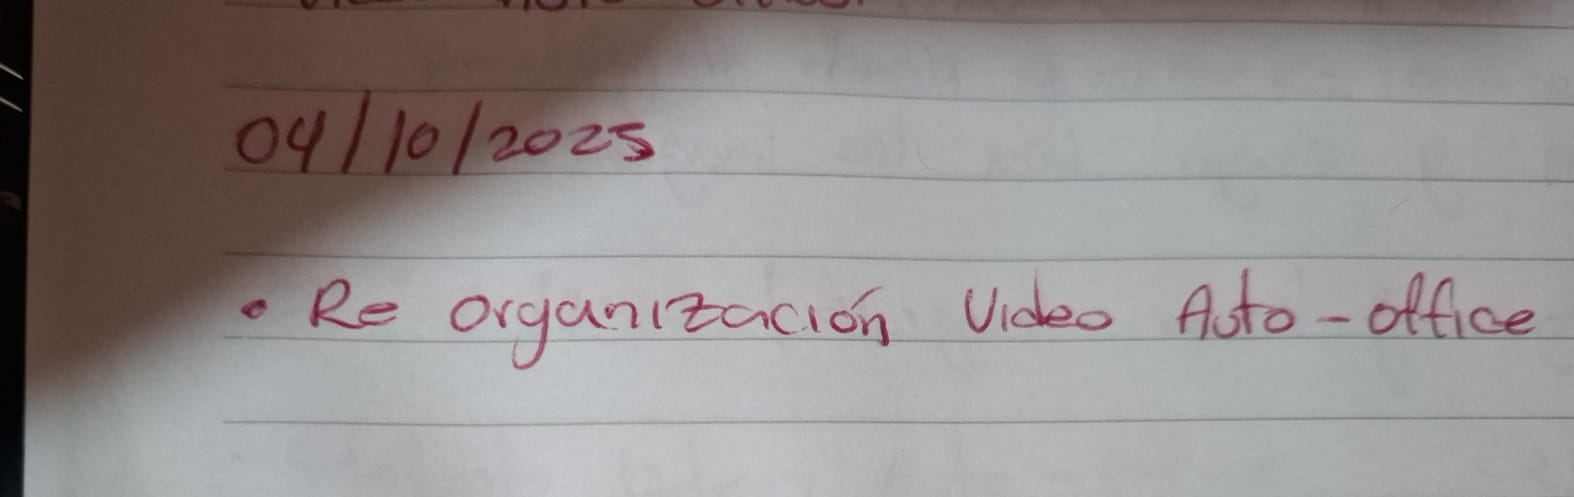 04/10/2025
• Re organización Video Auto-office